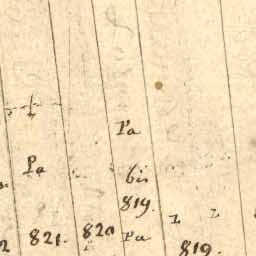 Pa
Pa
bis
819.
z z
2 821. 820 Pa 819.